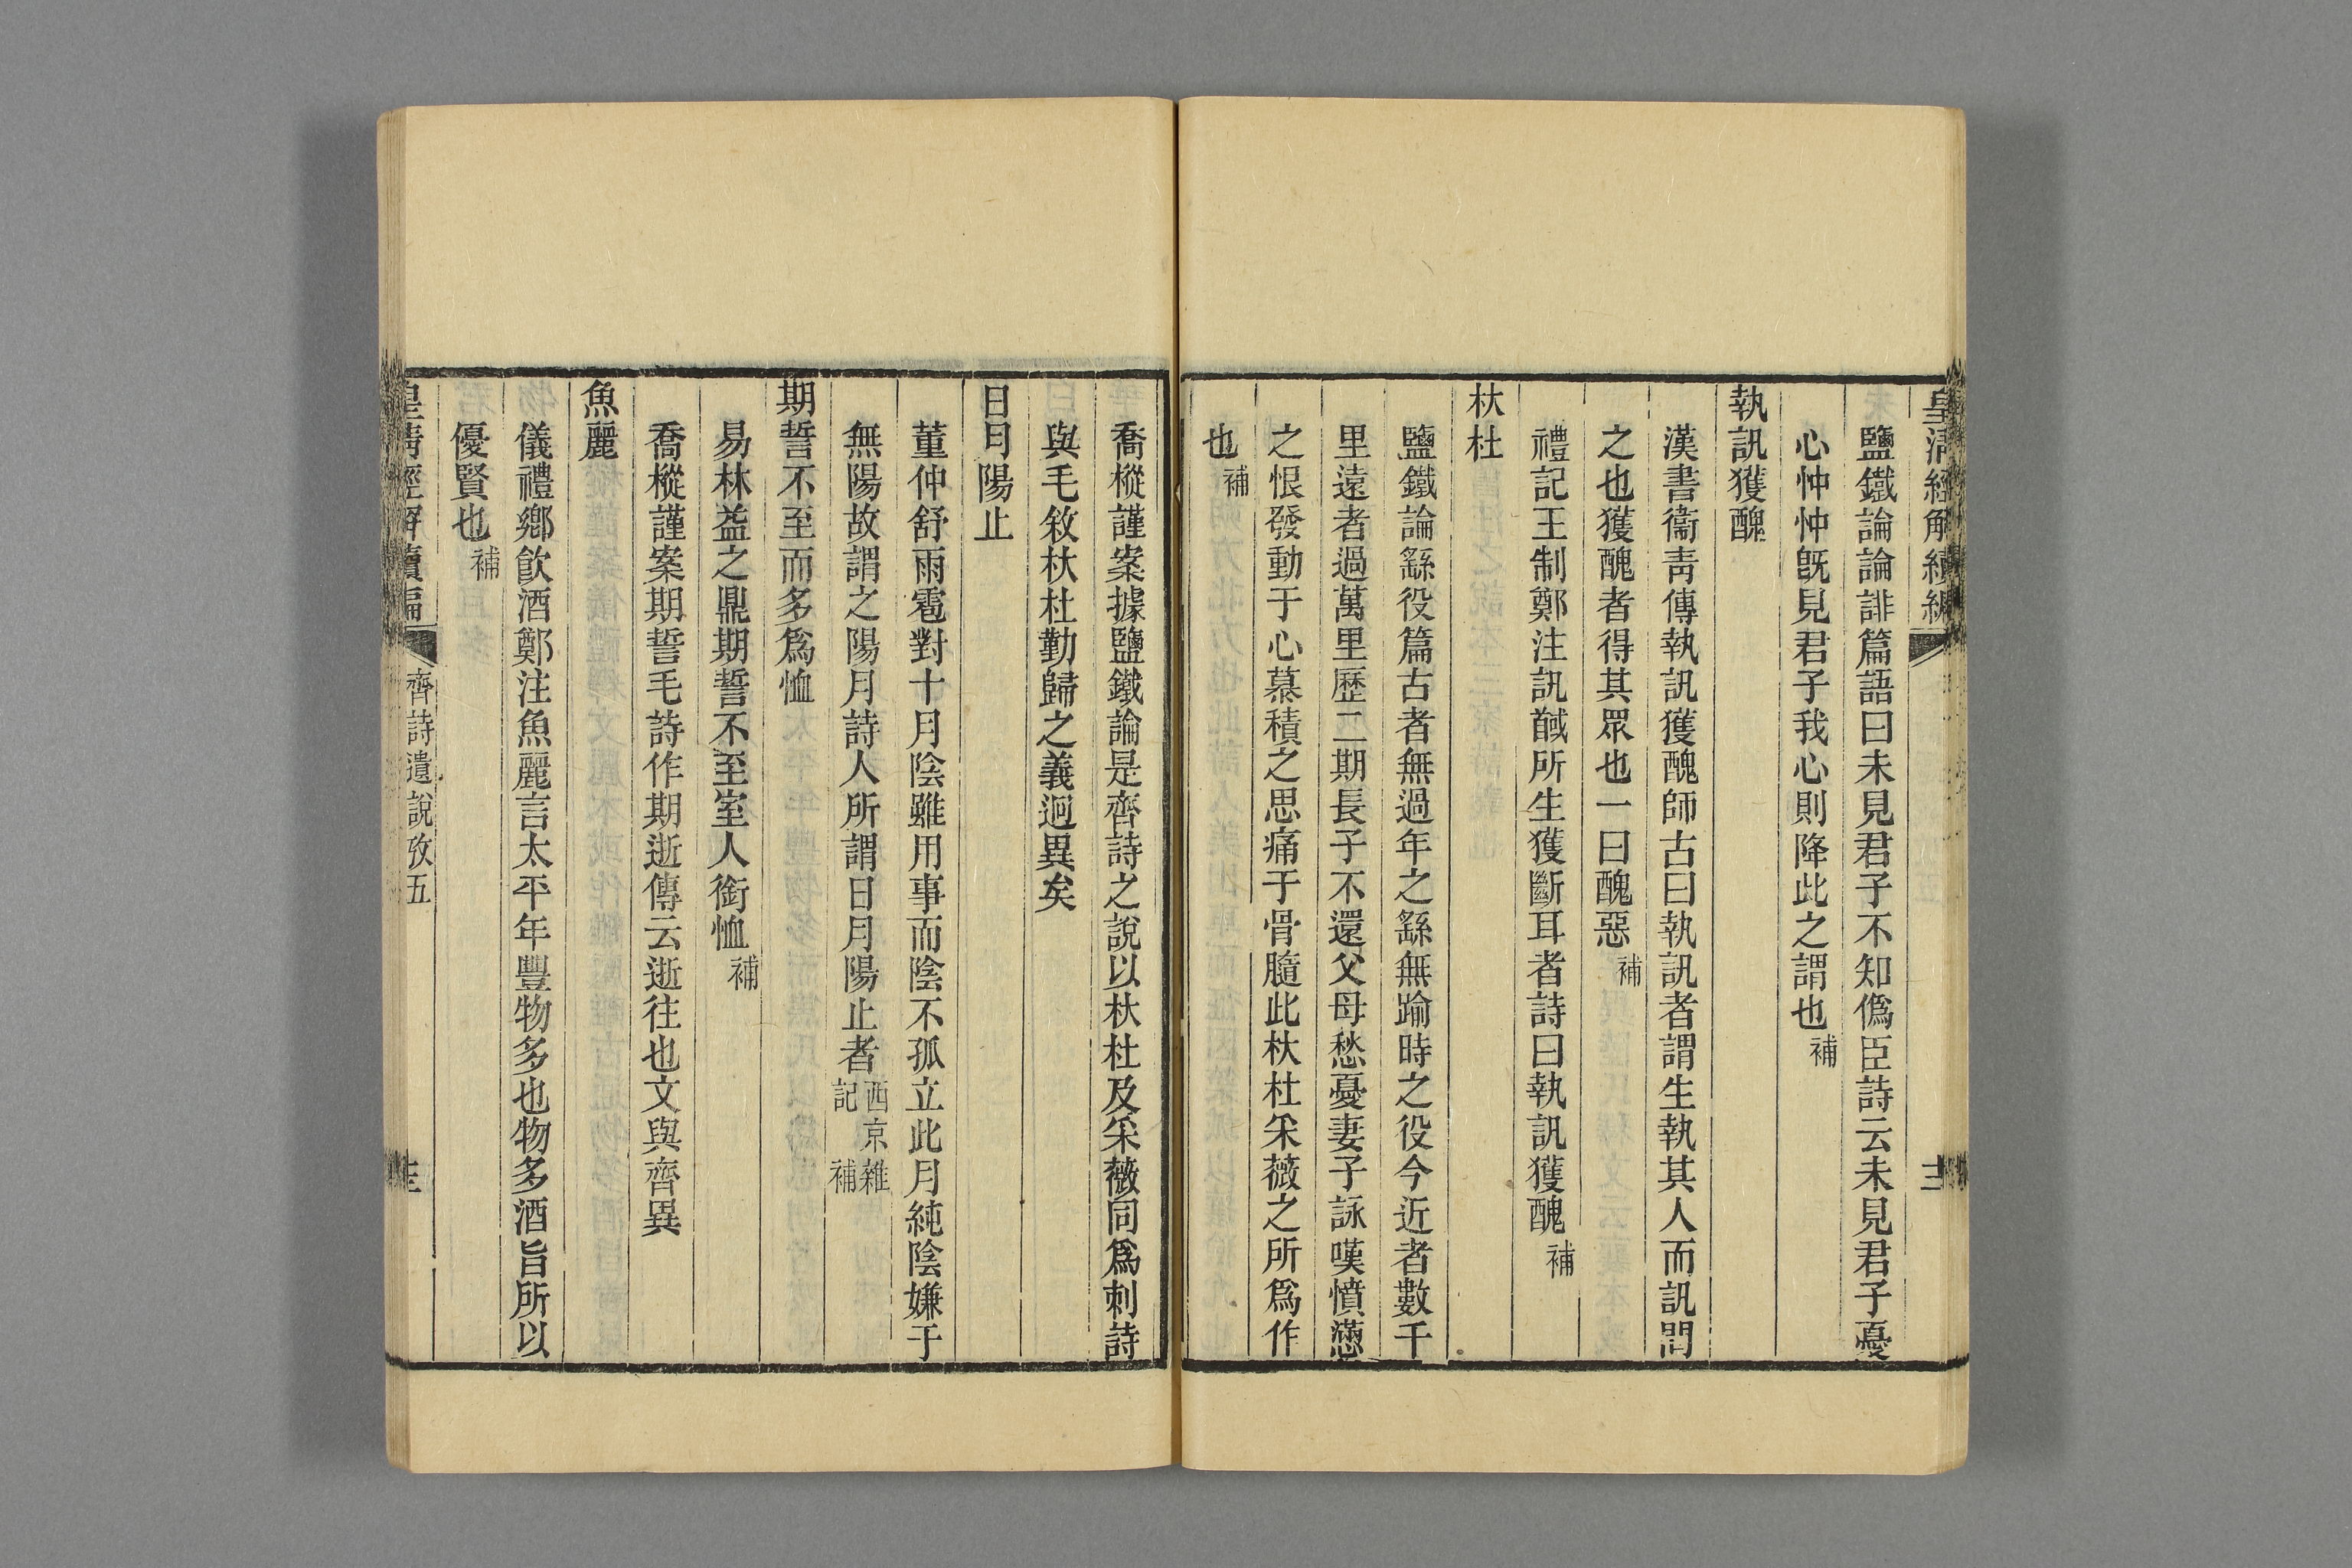 皇清經解續編
鹽鐵論論誹篇語曰未見君子不知僞臣詩云未見君子憂
心忡忡旣見君子我心則降此之謂也補
執訊獲醜
漢書衞靑傳執訊獲醜師古曰執訊者謂生執其人而訊問
之也獲醜者得其眾也一曰醜惡補
禮記王制鄭注訊馘所生獲斷耳者詩曰執訊獲醜補
杕杜
鹽鐵論繇役篇古者無過年之繇無踰時之役今近者數千
里遠者過萬里歷二期長子不還父母愁憂妻子詠嘆憤懣
之恨發動于心慕積之思痛于骨髓此杕杜采薇之所爲作
也補
喬樅謹案據鹽鐵論是齊詩之說以杕杜及采薇同爲刺詩
與毛敘杕杜勤歸之義迥異矣
日月陽止
董仲舒雨雹對十月陰雖用事而陰不孤立此月純陰嫌于
無陽故謂之陽月詩人所謂日月陽止者西京雜記補
期誓不至而多爲恤
易林益之鼎期誓不至室人銜恤補
喬樅謹案期誓毛詩作期逝傳云逝往也文與齊異
魚麗
儀禮鄉飮酒鄭注魚麗言太平年豐物多也物多酒旨所以
優賢也補
皇清經解續編 齊詩遺說攷五